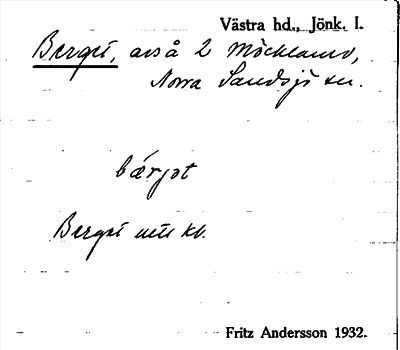 Västra hd., Jönk. l.
Berget, avs å 2 Möcklamo,
Norra Sandsjö sn.
bærjət
Berget utt kb.
Fritz Andersson 1932.